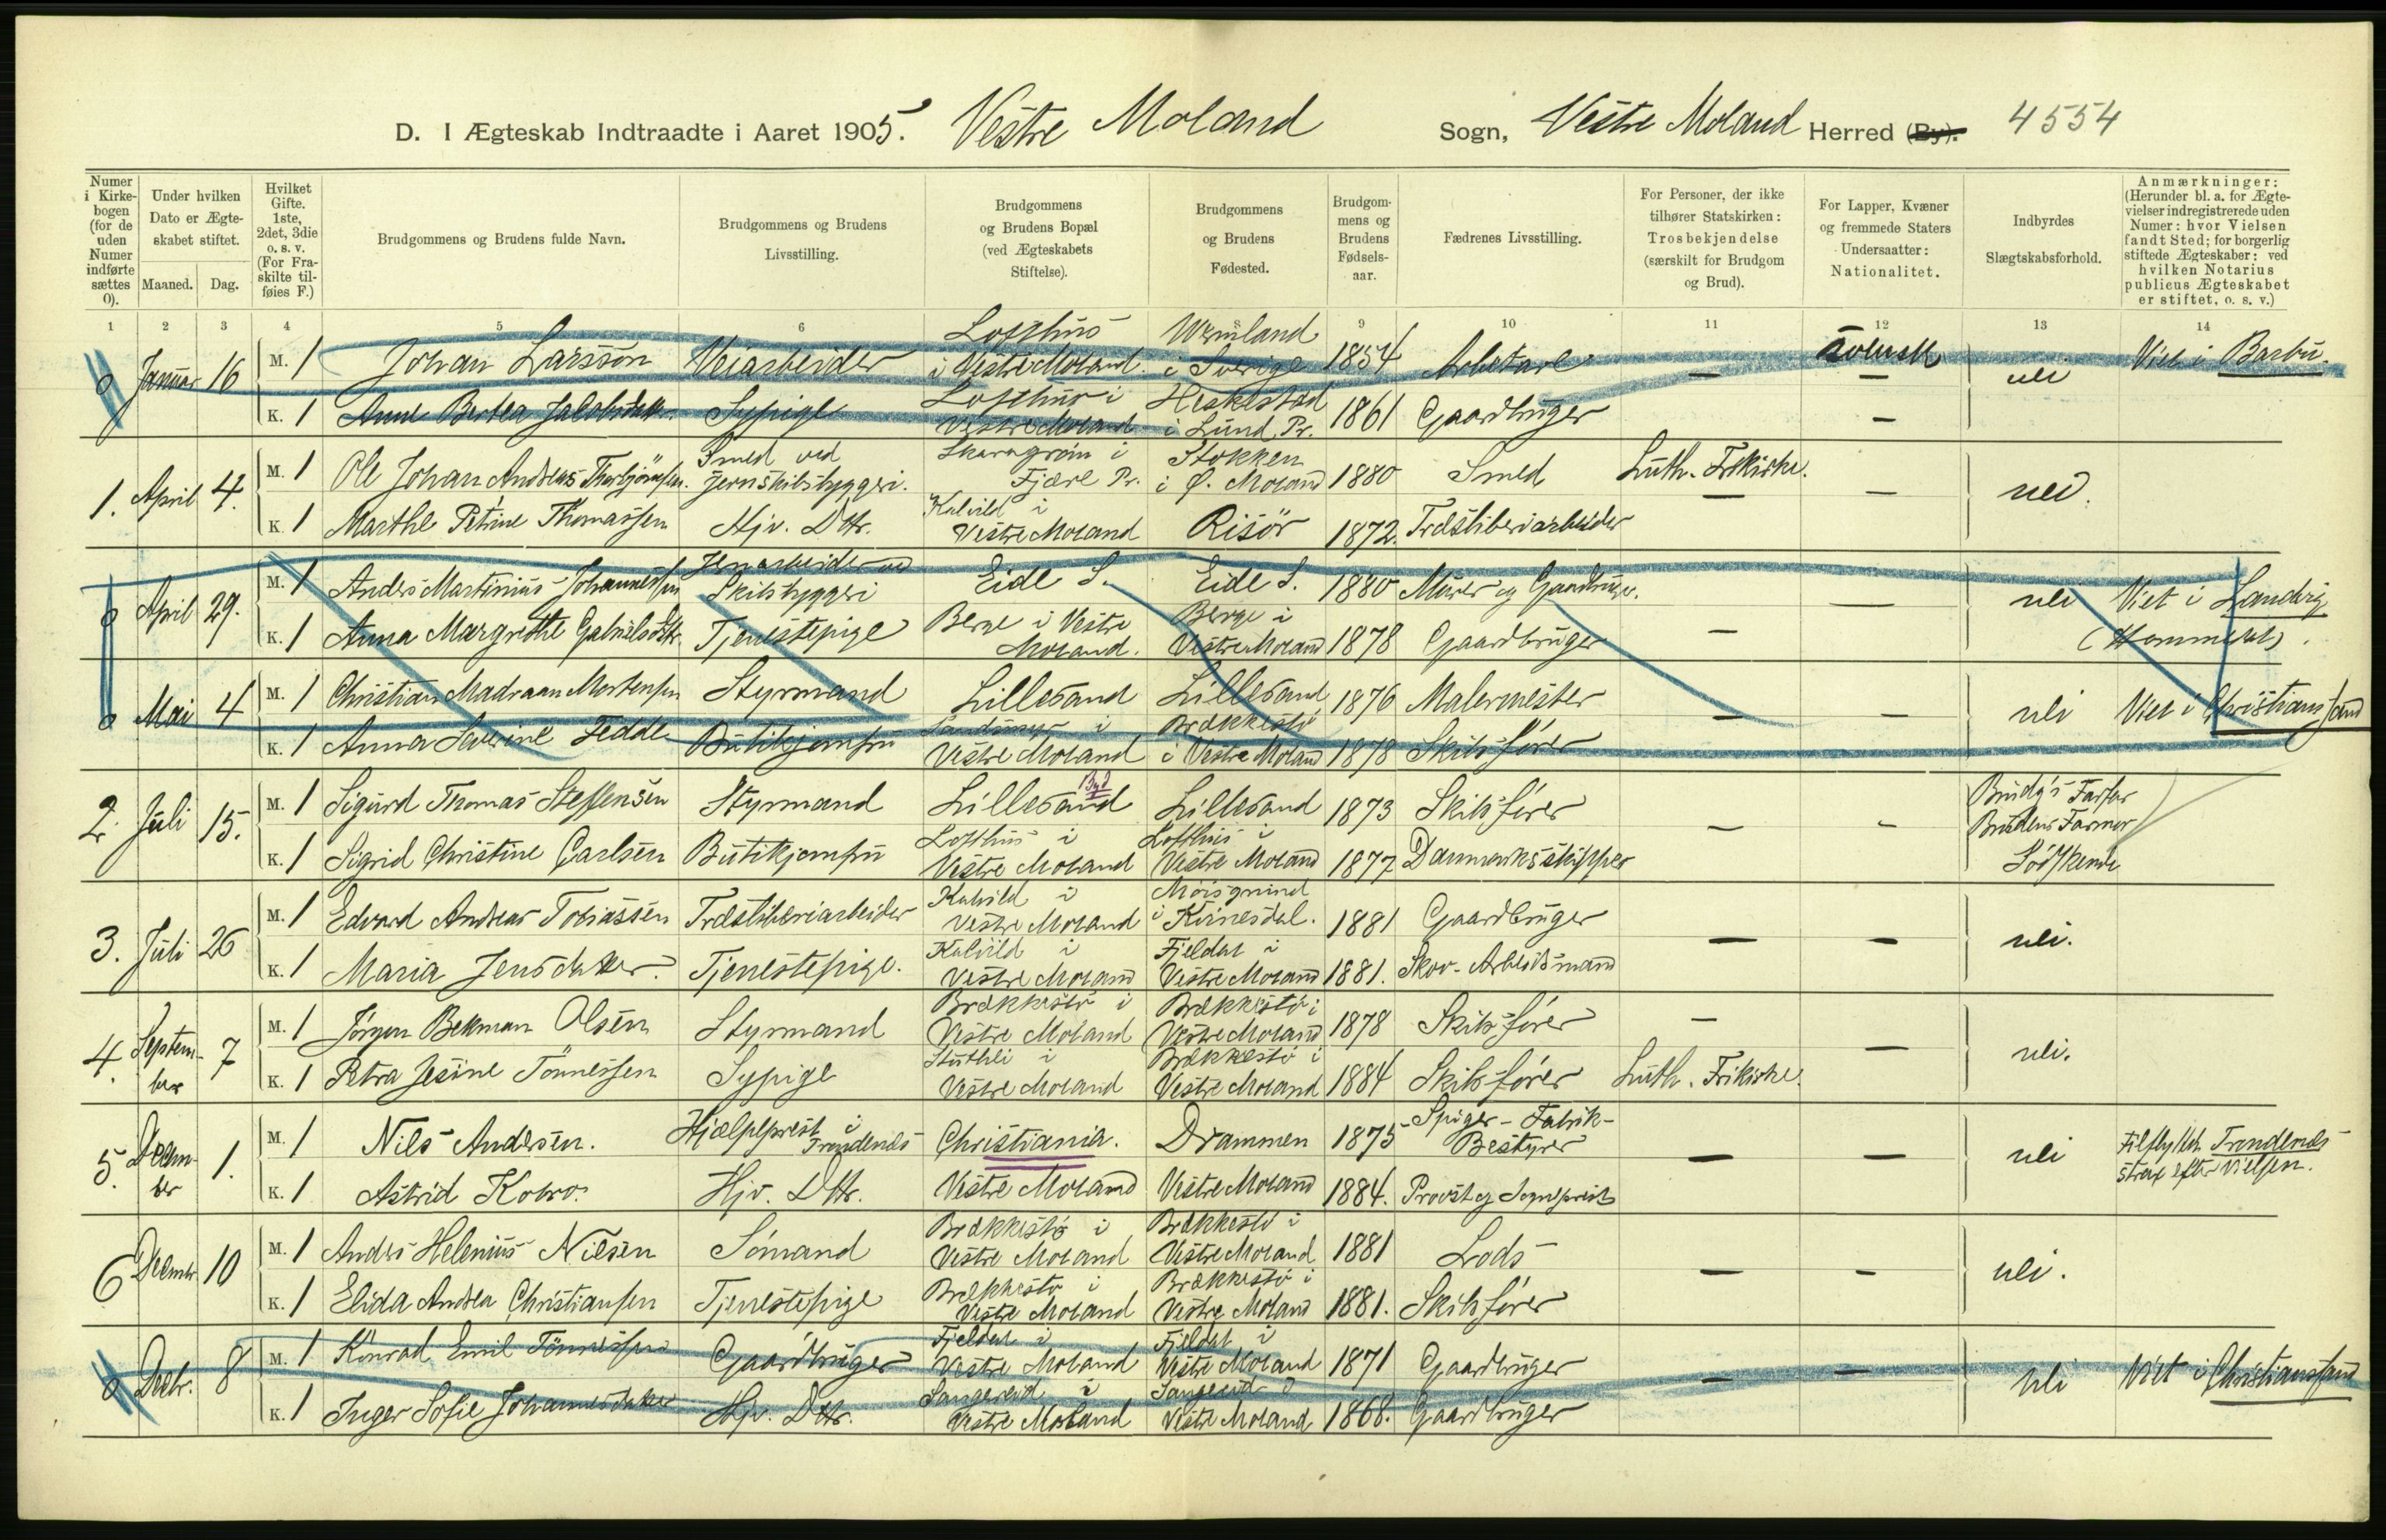 D. I Ægteskab Indtraadte i Aaret 1905. Vestre Moland Sogn, Vestre Moland Herred (By). 4554
Numer i Kirke-bogen (for de uden Numer indførte sættes 0).
Under hvilken Dato er Ægte-skabet stiftet.
Maaned. Dag.
Hvilket Gifte. 1ste, 2det, 3die o. s. v. (For Fra-skilte til-føies F.)
Brudgommens og Brudens fulde Navn.
Brudgommens og Brudens Livsstilling.
Brudgommens og Brudens Bopæl (ved Ægteskabets Stiftelse).
Brudgommens og Brudens Fødested.
Brudgom-mens og Brudens Fødsels-aar.
Fædrenes Livsstilling.
For Personer, der ikke tilhører Statskirken: Trosbekjendelse (særskilt for Brudgom og Brud).
For Lapper, Kvæner og fremmede Staters Undersaatter: Nationalitet.
Indbyrdes Slægtskabsforhold.
Anmærkninger: (Herunder bl. a. for Ægte-vielser indregistrerede uden Numer: hvor Vielsen fandt Sted; for borgerlig stiftede Ægteskaber: ved hvilken Notarius publicus Ægteskabet er stiftet, o. s. v.)
1 2 3 4 5 6 7 8 9 10 11 12 13 14
0 Januar 16 M. 1 Johan Larsson Veiarbeider Lofthus i Vestre Moland. Wermland i Sverige 1854 Arbetare — svensk — nei Viet i Barbu.
K. 1 Anne Bertea Jakobsdatt. Sypige Lofthus i Vestre Moland Heskestad i Lund Pr. 1861 Gaardbruger —
1. April 4. M. 1 Ole Johan Andreas Thorbjörnsen. Smed ved Jernskibsbyggeri. i Fjære Pr. Stokken i Ø. Moland 1880 Smed Luth. Frikirke. — — nei.
K. 1 Marthe Petrine Thomassen Hjv. Dttr. Kalvild i Vestre Moland Risör 1872. Træsliberiarbeider
0 April 29. M. 1 Anders Martinius Johannessen Jernarbeider ved Skibsbyggeri Eide S. Eide S. 1880 Murer og Gaardbruger. — nei Viet i Landvig
K. 1 Anna Margrethe Gabrielsdttr. Tjenestepige Berge i Vestre Moland. Berge i Vestre Moland 1878 Gaardbruger — (Hommedal).
0 Mai 4 M. 1 Christian Madvaan Mortensen Styrmand Lillesand Lillesand 1876 Malermester — — nei Viet i Christianssand
K. 1 Anna Severine Fedde Butikjomfru i Vestre Moland Brækkestø i Vestre Moland 1878 Skibsfører
2. Juli 15. M. 1 Sigurd Thomas Steffensen Styrmand Lillesand By? Lillesand 1873 Skibsfører — — Brudg's Farfar Brudens Farmor Södskende
K. 1 Sigrid Christine Carlsen Butikjomfru Lofthus i Vestre Moland Lofthus i Vestre Moland 1877 Danmarksskipper
3. Juli 26 M. 1 Edvard Andreas Tobiassen Træsliberiarbeider Kalvild i Vestre Moland Moisgrund i Kvinesdal. 1881 Gaardbruger — — nei.
K. 1 Maria Jensdatter. Tjenestepige. Kalvild i Vestre Moland Fjeldal i Vestre Moland 1881. Skov-Arbeidsmand
4. September 7 M. 1 Jörgen Bekman Olsen Styrmand Brækkestø i Vestre Moland Brækkestø i Vestre Moland 1878 Skibsfører — — nei.
K. 1 Petra Jesine Tönnessen Sypige i Vestre Moland Brækkestø i Vestre Moland 1884 Skibsfører Luth. Frikirke.
5. December 1. M. 1 Nils Andersen. Hjælpeprest i Trondenæs Christiania. Drammen 1875 Spiger-Fabrik-Bestyrer — — nei Tilflyttet Trondenæs strax efter Vielsen.
K. 1 Astrid Kobro. Hjv. Dttr. Vestre Moland Vestre Moland 1884. Provst og Sogneprest
6 Decembr. 10 M. 1 Anders Helenius Nilsen Sömand Brækkestø i Vestre Moland Brækkestø i Vestre Moland 1881 Lods — — nei.
K. 1 Elida Andrea Christiansen Tjenestepige Brækkestø i Vestre Moland Brækkestø i Vestre Moland 1881. Skibsfører
0 Decbr. 8 M. 1 Konrad Emil Tönnessen Gaardbruger Fjeldal i Vestre Moland Fjeldal i Vestre Moland 1871 Gaardbruger — — nei Viet i Christianssand
K. 1 Inger Sofie Johannesdatter Hjv. Dttr. Sangereid i Vestre Moland Sangereid i Vestre Moland 1868. Gaardbruger